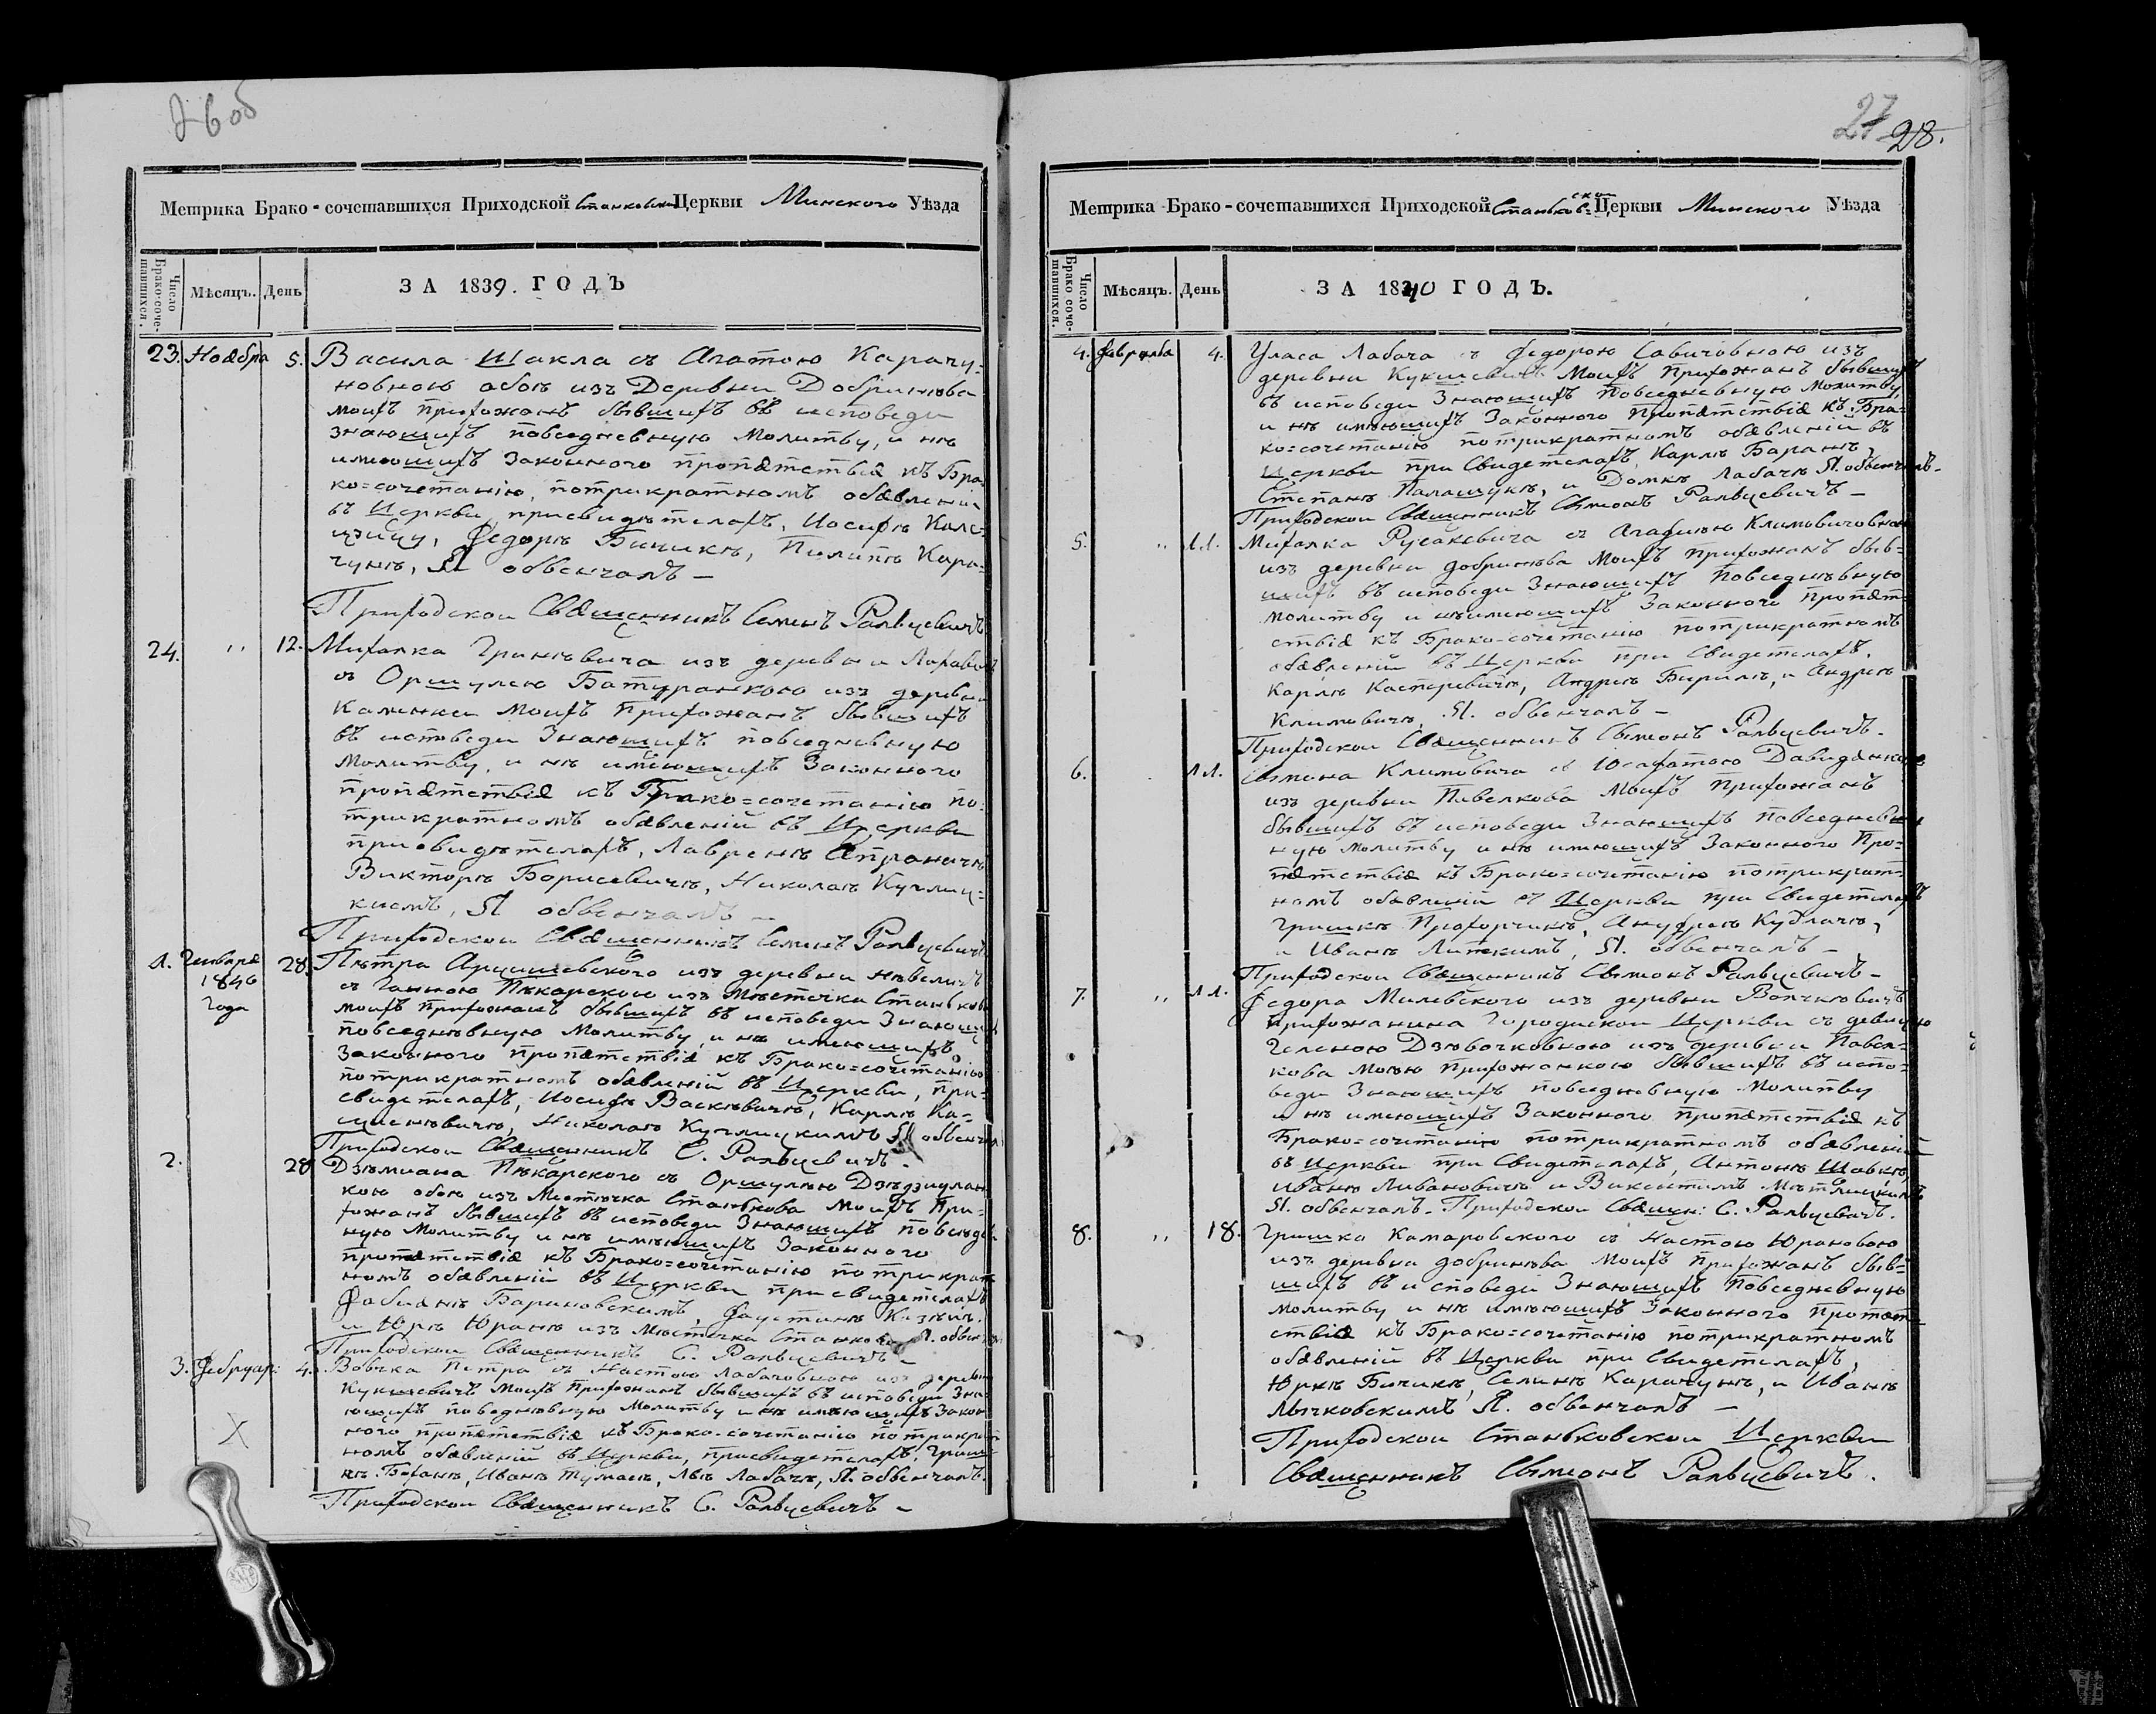 26 об
Метрика Брако-сочетавшихся Приходской Станковской Церкви Минского Уѣзда
Число Брако-соче-
тавшихся.
Мѣсяцъ. День
ЗА 1839. ГОДЪ
23. Ноября 5. Васила Шакла съ Агатою Карачу-
новною обоѣ изъ Деревни Добринюва
моихъ прихожанъ бывшихъ въ исповеди
знающихъ повседневную Молитву, и не
имеющихъ Законного пропятствия къ Бра-
ко=сочетанію, потрикратномъ обявлении
въ Церкви присвидѣтелахъ, Иосифѣ
Федорѣ Бичикѣ, Пилипѣ Кара-
чунѣ, Я обвенчалъ —
Приходскои Священникъ Семенъ Ральцевичъ
24. ,, 12. Михалка Гриневича изъ деревни
съ Оршулею Батуранкою изъ деревни
Каменки Моихъ Прихожанъ бывшихъ
въ исповеди Знающихъ повседневную
Молитву, и нѣ имеющихъ Законного
пропятствия къ Брако=сочетанію по-
трикратномъ обявлений въ Церкви
присвидѣтелахъ, Лавренѣ
Викторѣ Борисевичѣ, Николаѣ Кучмиц-
кимъ, Я обвенчалъ —
Приходскои Священникъ Семенъ Ральцевичъ
1. Генваря 28. Пѣтра Арцишевского изъ деревни
1840 съ Ганною Пѣкарскою изъ Мѣстечка Станькова
года моихъ прихожанъ бывшихъ въ исповеди Знающихъ
повседнѣвную Молитву, и нѣ имеющихъ
Законного пропятствия къ Брако=сочетанію
потрикратномъ обявлений въ Церкви, при-
свидетелахъ, Иосифѣ Васкѣвичѣ, Карлѣ Ка-
Николаю Кучмицкимъ Я обвенчалъ
Приходскои Священникъ С. Ральцевичъ.
2. 28 Дзѣмиана Пѣкарского съ Оршулею
кою обою изъ Местечка Станькова Моихъ При-
хожанъ бывшихъ въ исповеди Знающихъ повсед
ную Молитву и нѣ имѣющихъ Законного
пропятствия къ Брако=сочетанию потрикрат
номъ обявлений въ Церкви присвидетелахъ
Фабиянѣ Бариновскимъ, Фаустинѣ
и Юркѣ изъ Местечка Станькова Я. обвенчалъ
Приходскои Священникъ С. Ральцевичъ —
3. Февруар: 4. Вовчка Петра съ Настою Лабачовною изъ деревни
Кукшевичъ Моихъ Прихожанъ бывшихъ въ исповеди Зна-
ющихъ поведнѣвную Молитву и нѣ имеющихъ Закон
ного пропятствия къ Брако-сочетанию потрикрат
номъ обявлений въ Церкви, присвидетелахъ, Гриш-
кѣ Иванѣ Тумасѣ, Лабачѣ, Я. обвенчалъ.
Приходскои Священникъ С. Ральцевичъ —
27 28.
Метрика Брако-сочетавшихся Приходской Станьков=ской Церкви Минского Уѣзда
Число Брако соче-
тавшихся.
Мѣсяцъ. День
ЗА 1840 ГОДЪ.
4. 4. Уласа Лабача съ Федорою Савичовною изъ
деревни Кукшевичъ Моихъ Прихожанъ бывшихъ
въ исповеди Знающихъ Повседневную Молитву,
и нѣ имеющихъ Законного Пропятствия къ Бра-
ко=сочетанію потрикратномъ обявлений въ
Церкви при Свидетелахъ, Карлѣ Баранѣ,
Степанѣ Палашукѣ, и Домкѣ Лабачѣ Я. обвенчалъ.
Приходскои Священникъ Сымонъ Ральцевичъ —
5. ,, 11. Михалка Русакевича съ Агафиею Климовичовною
изъ деревни добринева Моихъ Прихожанъ быв-
шихъ въ исповеди Знающихъ Повседнѣвную
молитву и неимеющихъ Законного пропят-
ствия къ Брако-сочетанию потрикратномъ
обявлений въ Церкви при Свидетелахъ,
Карлѣ Кастеревичѣ, Андреѣ Бирилѣ, и Андреѣ
Климовичѣ, Я. обвенчалъ —
Приходскои Священникъ Сымонъ Ральцевичъ.
6. 11. Сымона Климовича съ Юсафатою Давидянкою
изъ деревни Павелкова Моихъ прихожанъ
бывшихъ въ исповеди Знающихъ Повседнев
ную молитву и нѣ имеющихъ Законного Про-
пятствия къ Брако=сочетанію потрикрат-
номъ обявлений въ Церкви при Свидетелахъ
Гришкѣ Прохорчикѣ, Ануфрею Кудлачѣ,
и Иванѣ Литскимъ, Я. обвенчалъ —
Приходскои Священникъ Сымонъ Ральцевичъ —
7. ,, 11. Федора Милевского изъ деревни
прихожанина Городискои Церкви съ девицею
Геленою Дзѣвочковною изъ деревни Павел-
кова Моею Прихожанкою бывшихъ въ испо-
веди Знающихъ повседневную Молитву
и нѣ имеющихъ Законного пропятствия къ
Брако=сочетанію потрикратномъ обявлений
въ Церкви при Свидетелахъ, Антонѣ
Иваню Ливановичѣ и Викентимъ
Я. обвенчалъ. Приходскои Священ: С. Ральцевичъ.
8. ,, 18. Гришка Камаровского съ Настою Юрановою
изъ деревни добринева Моихъ Прихожанъ быв-
шихъ въ исповеди Знающихъ Повседневную
молитву и нѣ имѣющихъ Законного Пропят-
ствия къ Брако=сочетанію потрикратномъ
обявлений въ Церкви при Свидетелахъ,
Юркѣ Бичикѣ, Семинѣ Карачунѣ, и Иванѣ
Лычковскимъ Я. обвенчалъ —
Приходскои Станьковскои Церкви
Священникъ Сымонъ Ральцевичъ.